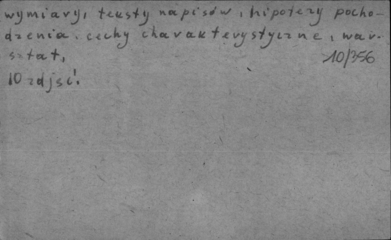 wymiary, teksty napisów, hipotezy pocho-
dzenia. cechy charakterystyczne, war-
sztat,
10/356
10 zdjęć.